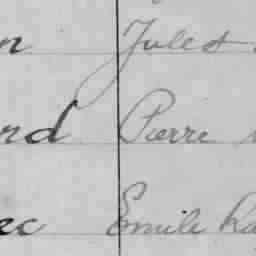 n Jules
nd Pierre
ec Emile